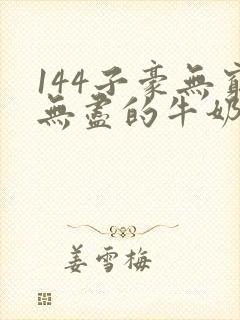 144子豪無窮
無盡的牛奶
姜雪梅